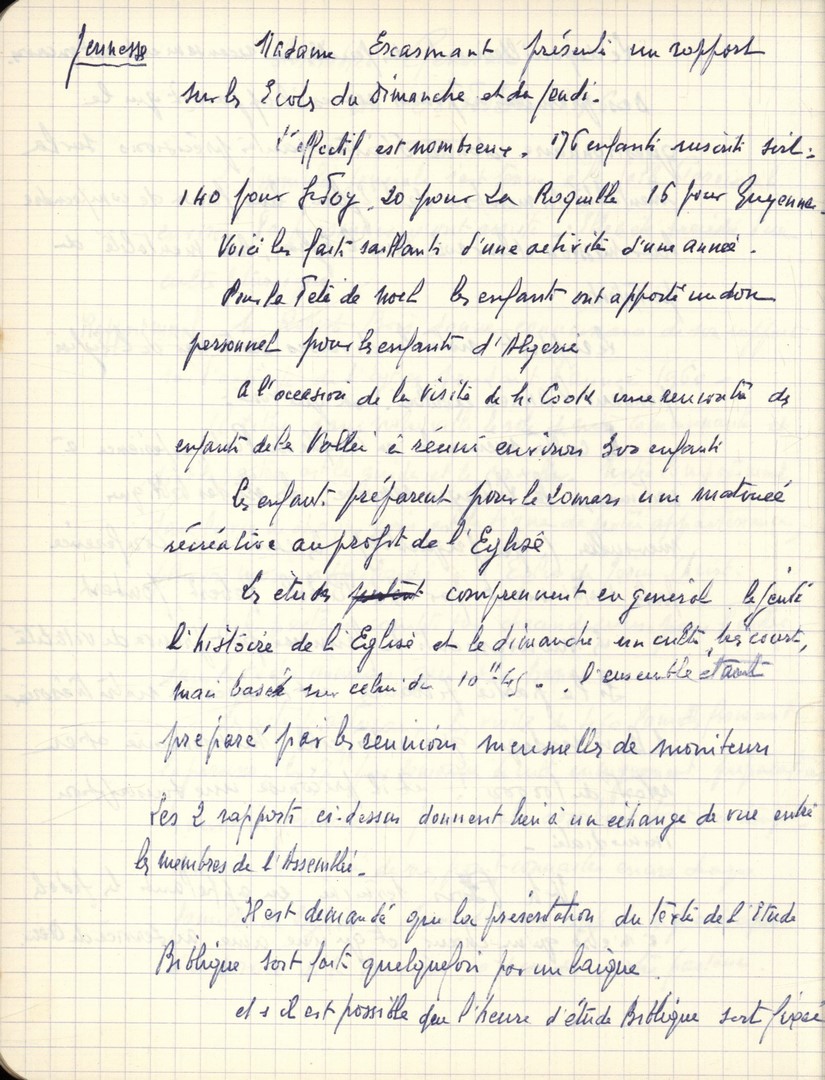 Jeunesse Madame Escasmant présente un rapport
sur les Ecoles du Dimanche et du Jeudi.
L'effectif est nombreux. 176 enfants inscrits soit :
140 pour Ste Foy, 20 pour La Roquille 16 pour Guyenne.
Voici les faits saillants d'une activité d'une année.
Pour la Fête de Noël les enfants ont apporté un don
personnel pour les enfants d'Algérie
A l'occasion de la visite de M. Cook une rencontre des
enfants de la Vallée à réuni environ 300 enfants
Les enfants préparent pour le 20 mars une matineé
récréative au profit de l'Eglise
Les études comprennent en général le Jeudi
l'histoire de l'Eglise et le dimanche un culte très court,
mais basé sur celui de 10 H 45. l'ensemble étant
préparé par les reunions mensuelles de moniteurs
Les 2 rapports ci-dessus donnent lieu à un échange de vue entre
les membres de l'Assemblée.
Il est demandé que la présentation du texte de l'Etude
Biblique soit faite quelquefois par un laïque
et s'il est possible que l'heure d'étude Biblique soit fixée